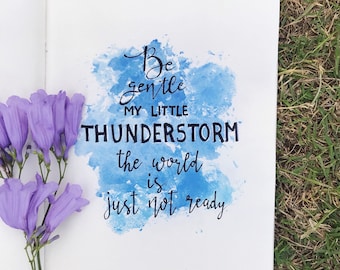 Be
gentle
MY LITTLE
THUNDERSTORM
the world
is
just not ready